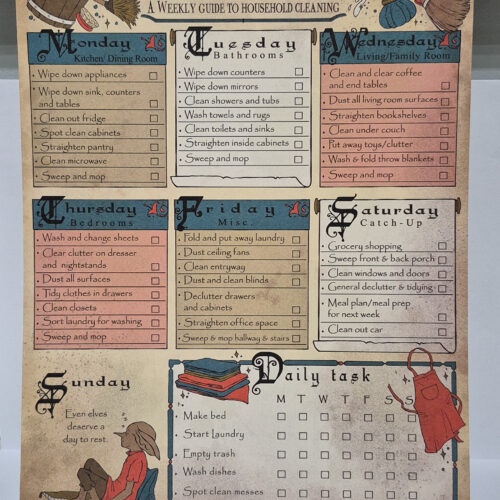 A Weekly Guide to Household Cleaning
Monday
Kitchen/ Dining Room
• Wipe down appliances
• Wipe down sink, counters
and tables
• Clean out fridge
• Spot clean cabinets
• Straighten pantry
• Clean microwave
• Sweep and mop
Tuesday
Bathrooms
• Wipe down counters
• Wipe down mirrors
• Clean showers and tubs
• Wash towels and rugs
• Clean toilets and sinks
• Straighten inside cabinets
• Sweep and mop
Wednesday
Living/Family Room
• Clean and clear coffee
and end tables
• Dust all living room surfaces
• Straighten bookshelves
• Clean under couch
• Put away toys/clutter
• Wash & fold throw blankets
• Sweep and mop
Thursday
Bedrooms
• Wash and change sheets
• Clear clutter on dresser
and nightstands
• Dust all surfaces
• Tidy clothes in drawers
• Clean closets
• Sort laundry for washing
• Sweep and mop
Friday
Misc
• Fold and put away laundry
• Dust ceiling fans
• Clean entryway
• Dust and clean blinds
• Declutter drawers
and cabinets
• Straighten office space
• Sweep & mop hallway & stairs
Saturday
Catch-Up
• Grocery shopping
• Sweep front & back porch
• Clean windows and doors
• General declutter & tidying
• Meal plan/meal prep
for next week
• Clean out car
Sunday
Even elves
deserve a
day to rest.
Daily task
M T W T F S S
• Make bed
• Start laundry
• Empty trash
• Wash dishes
• Spot clean messes